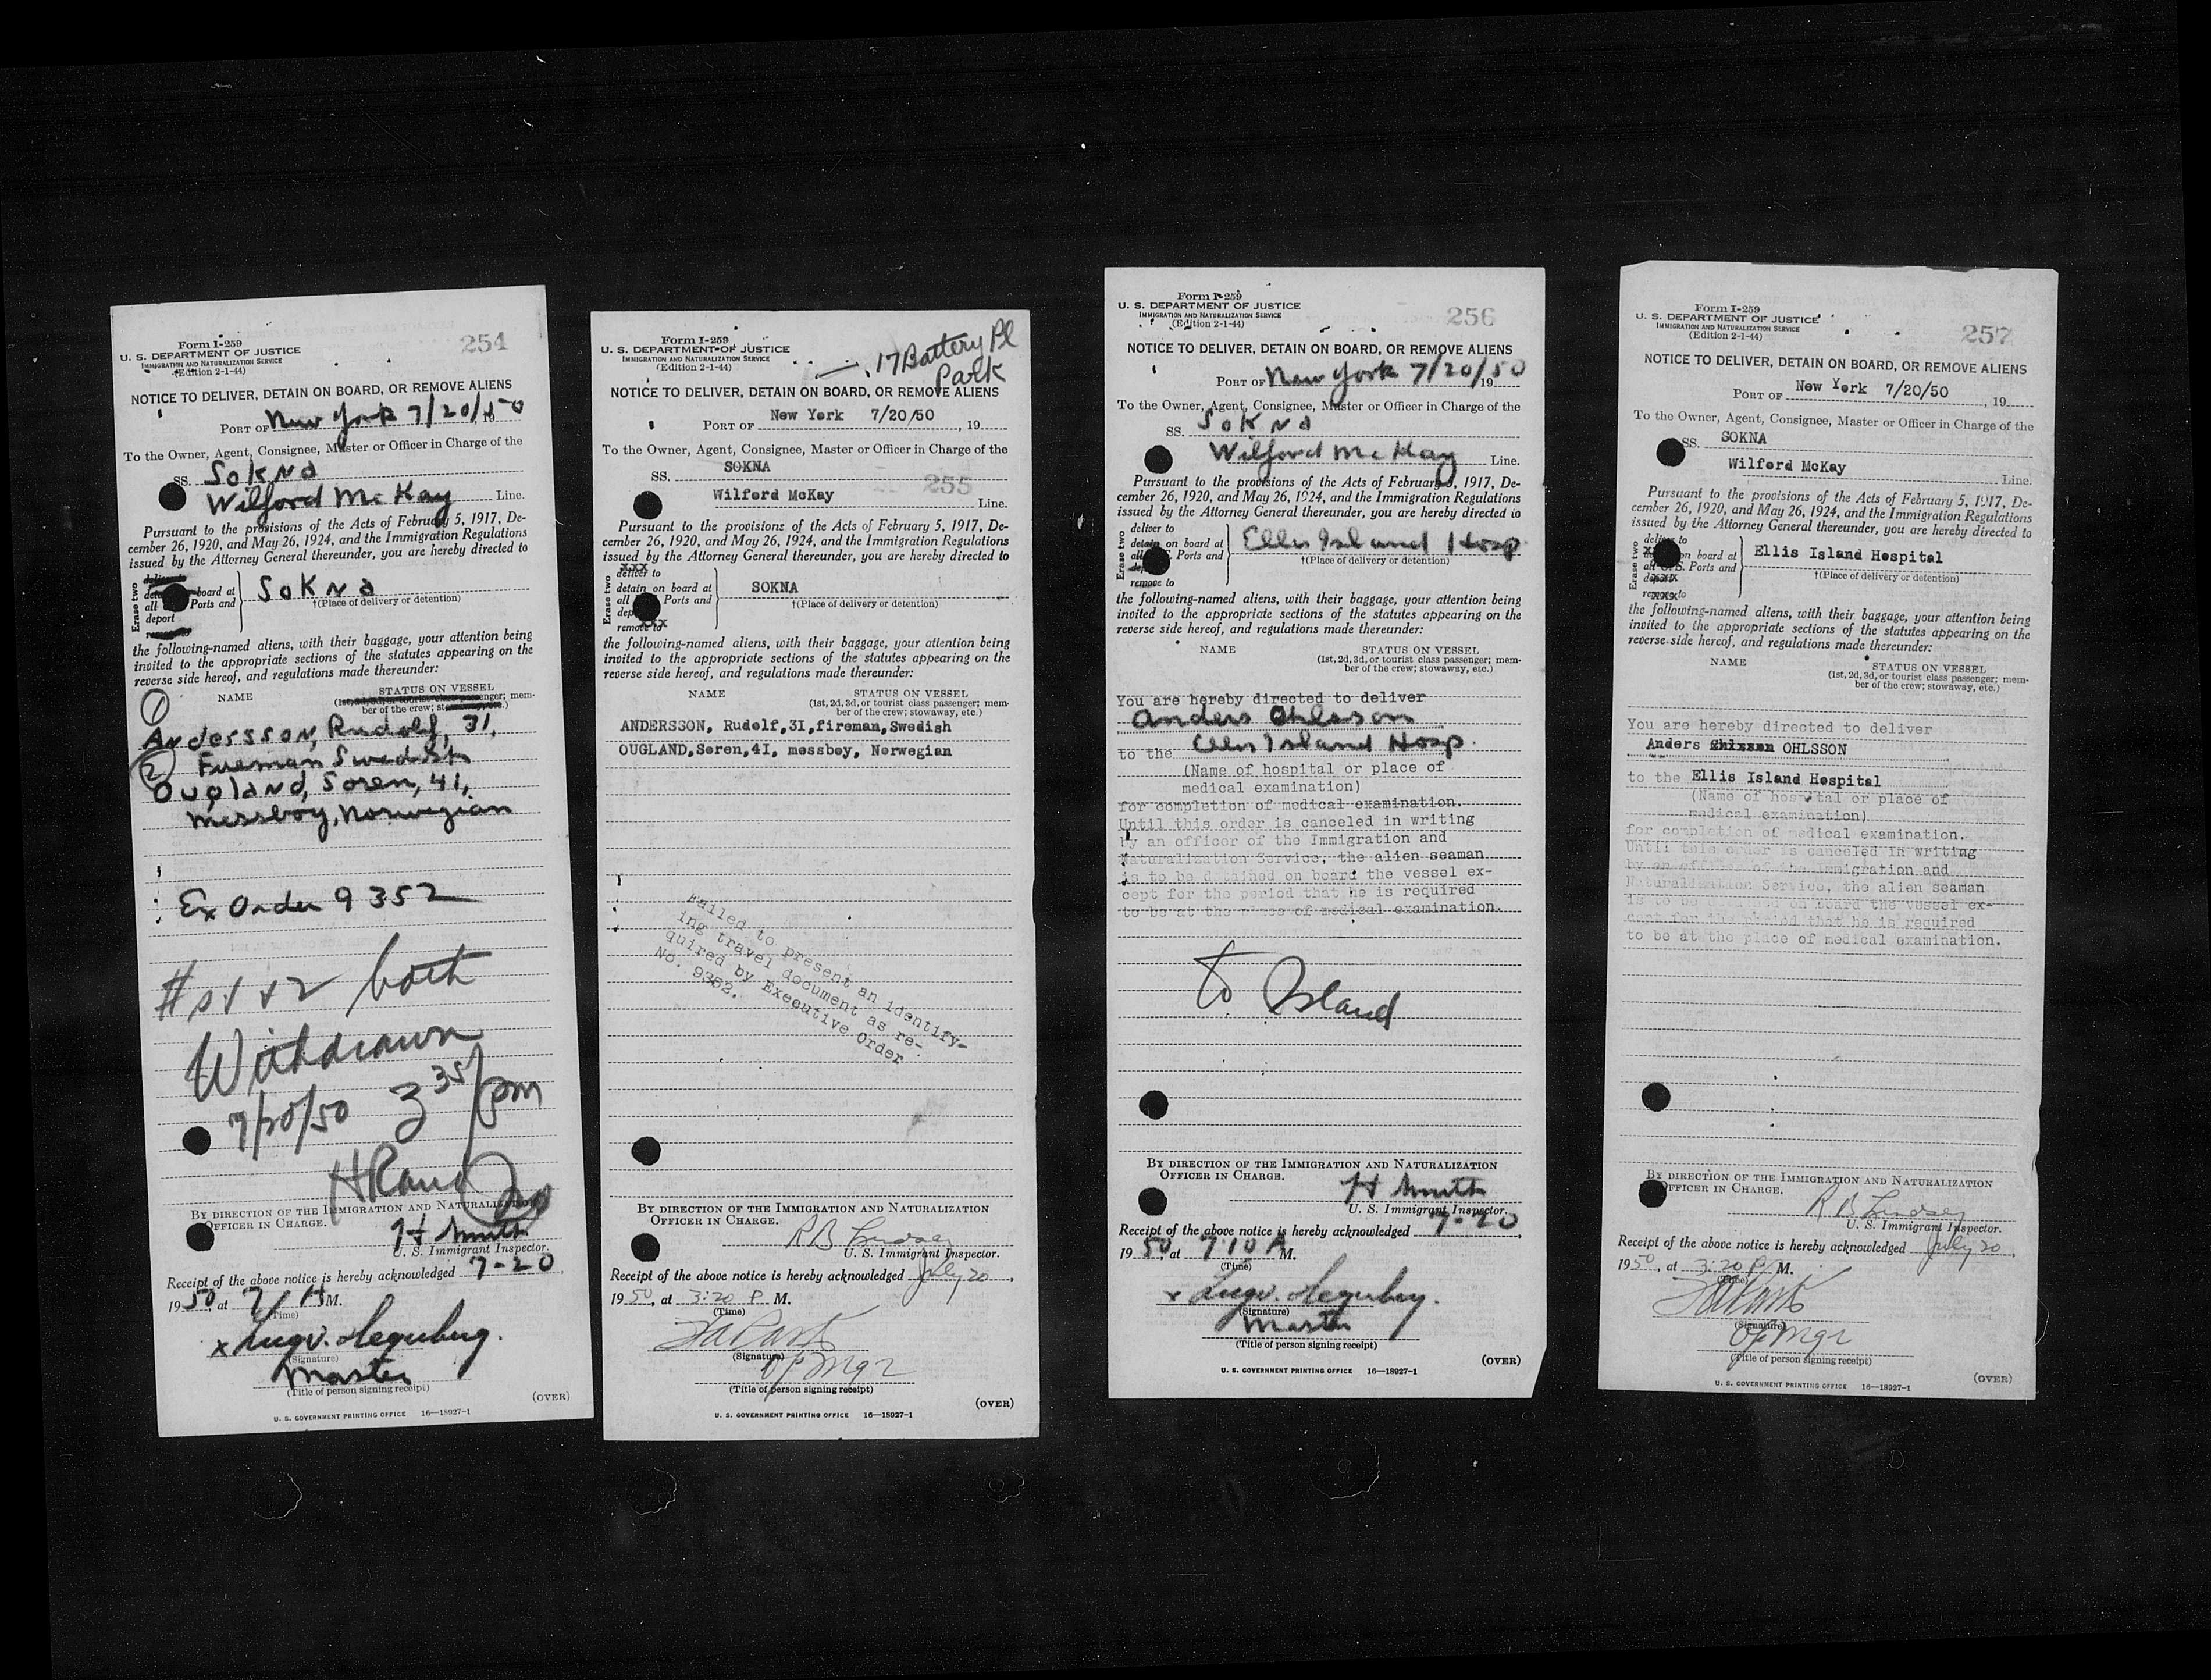 Form I-259
U. S. DEPARTMENT OF JUSTICE
IMMIGRATION AND NATURALIZATION SERVICE
(Edition 2-1-44)
254
NOTICE TO DELIVER, DETAIN ON BOARD, OR REMOVE ALIENS
PORT OF New York 7/20/50
To the Owner, Agent, Consignee, Master or Officer in Charge of the
SS. Sokna
Wilford McKay Line.
Pursuant to the provisions of the Acts of February 5, 1917, De-
cember 26, 1920, and May 26, 1924, and the Immigration Regulations
issued by the Attorney General thereunder, you are hereby directed to
Erase two
board at
all Ports and
deport
Sokna
†(Place of delivery or detention)
the following-named aliens, with their baggage, your attention being
invited to the appropriate sections of the statutes appearing on the
reverse side hereof, and regulations made thereunder:
NAME STATUS ON VESSEL
(1st, 2d, 3d, or tourist class passenger; mem-
ber of the crew; stowaway, etc.)
1 Andersson, Rudolf, 31,
Fireman Swedish
2 Ougland, Soren, 41,
Messboy, Norwegian
Ex Order 9352
#s 1 + 2 both
Withdrawn
7/20/50 3 35/pm
H Rand
BY DIRECTION OF THE IMMIGRATION AND NATURALIZATION
OFFICER IN CHARGE.
H Smith
U. S. Immigrant Inspector.
Receipt of the above notice is hereby acknowledged 7-20
1950, at 7/ A M.
(Time)
x
(Signature)
Master
(Title of person signing receipt)
(OVER)
U. S. GOVERNMENT PRINTING OFFICE 16—18927-1
Form I-259
U. S. DEPARTMENT OF JUSTICE
IMMIGRATION AND NATURALIZATION SERVICE
(Edition 2-1-44)
17 Battery Pl
Park
NOTICE TO DELIVER, DETAIN ON BOARD, OR REMOVE ALIENS
PORT OF New York 7/20/50, 19
To the Owner, Agent, Consignee, Master or Officer in Charge of the
SS. SOKNA
255
Wilford McKay Line.
Pursuant to the provisions of the Acts of February 5, 1917, De-
cember 26, 1920, and May 26, 1924, and the Immigration Regulations
issued by the Attorney General thereunder, you are hereby directed to
Erase two
deliver to
detain on board at
all Ports and
remove to
SOKNA
†(Place of delivery or detention)
the following-named aliens, with their baggage, your attention being
invited to the appropriate sections of the statutes appearing on the
reverse side hereof, and regulations made thereunder:
NAME STATUS ON VESSEL
(1st, 2d, 3d, or tourist class passenger; mem-
ber of the crew; stowaway, etc.)
ANDERSSON, Rudolf,31,fireman,Swedish
OUGLAND,Soren,41, messboy, Norwegian
Failed to present an identify-
ing travel document as re-
quired by Executive Order
No. 9352.
BY DIRECTION OF THE IMMIGRATION AND NATURALIZATION
OFFICER IN CHARGE.
R B Lindsey
U. S. Immigrant Inspector.
Receipt of the above notice is hereby acknowledged July 20,
1950, at 3:20 P M.
(Time)
(Signature)
Op Mgr
(Title of person signing receipt)
(OVER)
U. S. GOVERNMENT PRINTING OFFICE 16—18927-1
Form I-259
U. S. DEPARTMENT OF JUSTICE
IMMIGRATION AND NATURALIZATION SERVICE
(Edition 2-1-44)
256
NOTICE TO DELIVER, DETAIN ON BOARD, OR REMOVE ALIENS
PORT OF New York 7/20/50
To the Owner, Agent, Consignee, Master or Officer in Charge of the
SS. Sokna
Wilford McKay Line.
Pursuant to the provisions of the Acts of February 5, 1917, De-
cember 26, 1920, and May 26, 1924, and the Immigration Regulations
issued by the Attorney General thereunder, you are hereby directed to
Erase two
deliver to
detain on board at
Ports and
remove to
Ellis Island Hosp.
†(Place of delivery or detention)
the following-named aliens, with their baggage, your attention being
invited to the appropriate sections of the statutes appearing on the
reverse side hereof, and regulations made thereunder:
NAME STATUS ON VESSEL
(1st, 2d, 3d, or tourist class passenger; mem-
ber of the crew; stowaway, etc.)
You are hereby directed to deliver
Anders Ohlsson
to the Ellis Island Hosp.
(Name of hospital or place of
medical examination)
for completion of medical examination.
Until this order is canceled in writing
by an officer of the Immigration and
Naturalization Service, the alien seaman
is to be detained on board the vessel ex-
cept for the period that he is required
to be at the place of medical examination.
To Island
BY DIRECTION OF THE IMMIGRATION AND NATURALIZATION
OFFICER IN CHARGE.
H Smith
U. S. Immigrant Inspector.
Receipt of the above notice is hereby acknowledged 7-20,
1950 at 7:10 A M.
(Time)
x
(Signature)
Master
(Title of person signing receipt)
(OVER)
U. S. GOVERNMENT PRINTING OFFICE 16—18927-1
Form I-259
U. S. DEPARTMENT OF JUSTICE
IMMIGRATION AND NATURALIZATION SERVICE
(Edition 2-1-44)
257
NOTICE TO DELIVER, DETAIN ON BOARD, OR REMOVE ALIENS
PORT OF New York 7/20/50, 19
To the Owner, Agent, Consignee, Master or Officer in Charge of the
SS. SOKNA
Wilford McKay Line.
Pursuant to the provisions of the Acts of February 5, 1917, De-
cember 26, 1920, and May 26, 1924, and the Immigration Regulations
issued by the Attorney General thereunder, you are hereby directed to
Erase two
deliver to
on board at
all U.S. Ports and
Ellis Island Hospital
†(Place of delivery or detention)
the following-named aliens, with their baggage, your attention being
invited to the appropriate sections of the statutes appearing on the
reverse side hereof, and regulations made thereunder:
NAME STATUS ON VESSEL
(1st, 2d, 3d, or tourist class passenger; mem-
ber of the crew; stowaway, etc.)
You are hereby directed to deliver
Anders OHLSSON
to the Ellis Island Hospital
(Name of hospital or place of
medical examination)
for completion of medical examination.
Until this order is canceled in writing
by an officer of the Immigration and
Naturalization Service, the alien seaman
is to be detained on board the vessel ex-
cept for the period that he is required
to be at the place of medical examination.
BY DIRECTION OF THE IMMIGRATION AND NATURALIZATION
OFFICER IN CHARGE.
R B Lindsey
U. S. Immigrant Inspector.
Receipt of the above notice is hereby acknowledged July 20,
1950, at 3:20 P M.
(Time)
(Signature)
Op Mgr
(Title of person signing receipt)
(OVER)
U. S. GOVERNMENT PRINTING OFFICE 16—18927-1